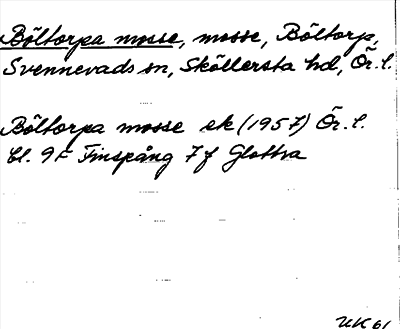 Böltorpa mosse, mosse, Böltorp,
Svennevads sn, Sköllersta hd, Ör. l.
Böltorpa mosse ek (1957) Ör. l.
bl. 9F Finspång 7f Glottra
UK 61